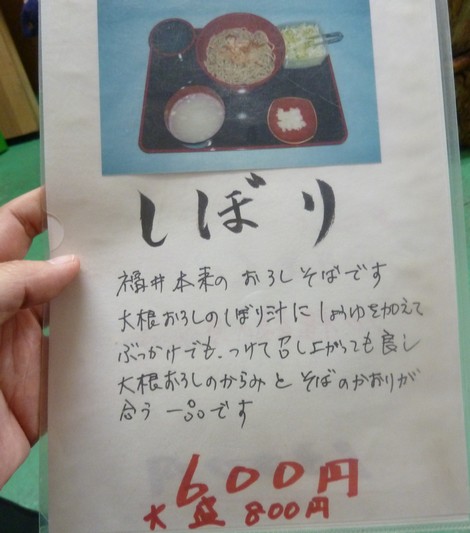 しぼり
福井本来の おろしそばです
大根おろしのしぼり汁に しょうゆを加えて
ぶっかけでも、つけて召し上がっても良し
大根おろしのからみと そばのかおりが
合う 一品です
600円
大盛 800円